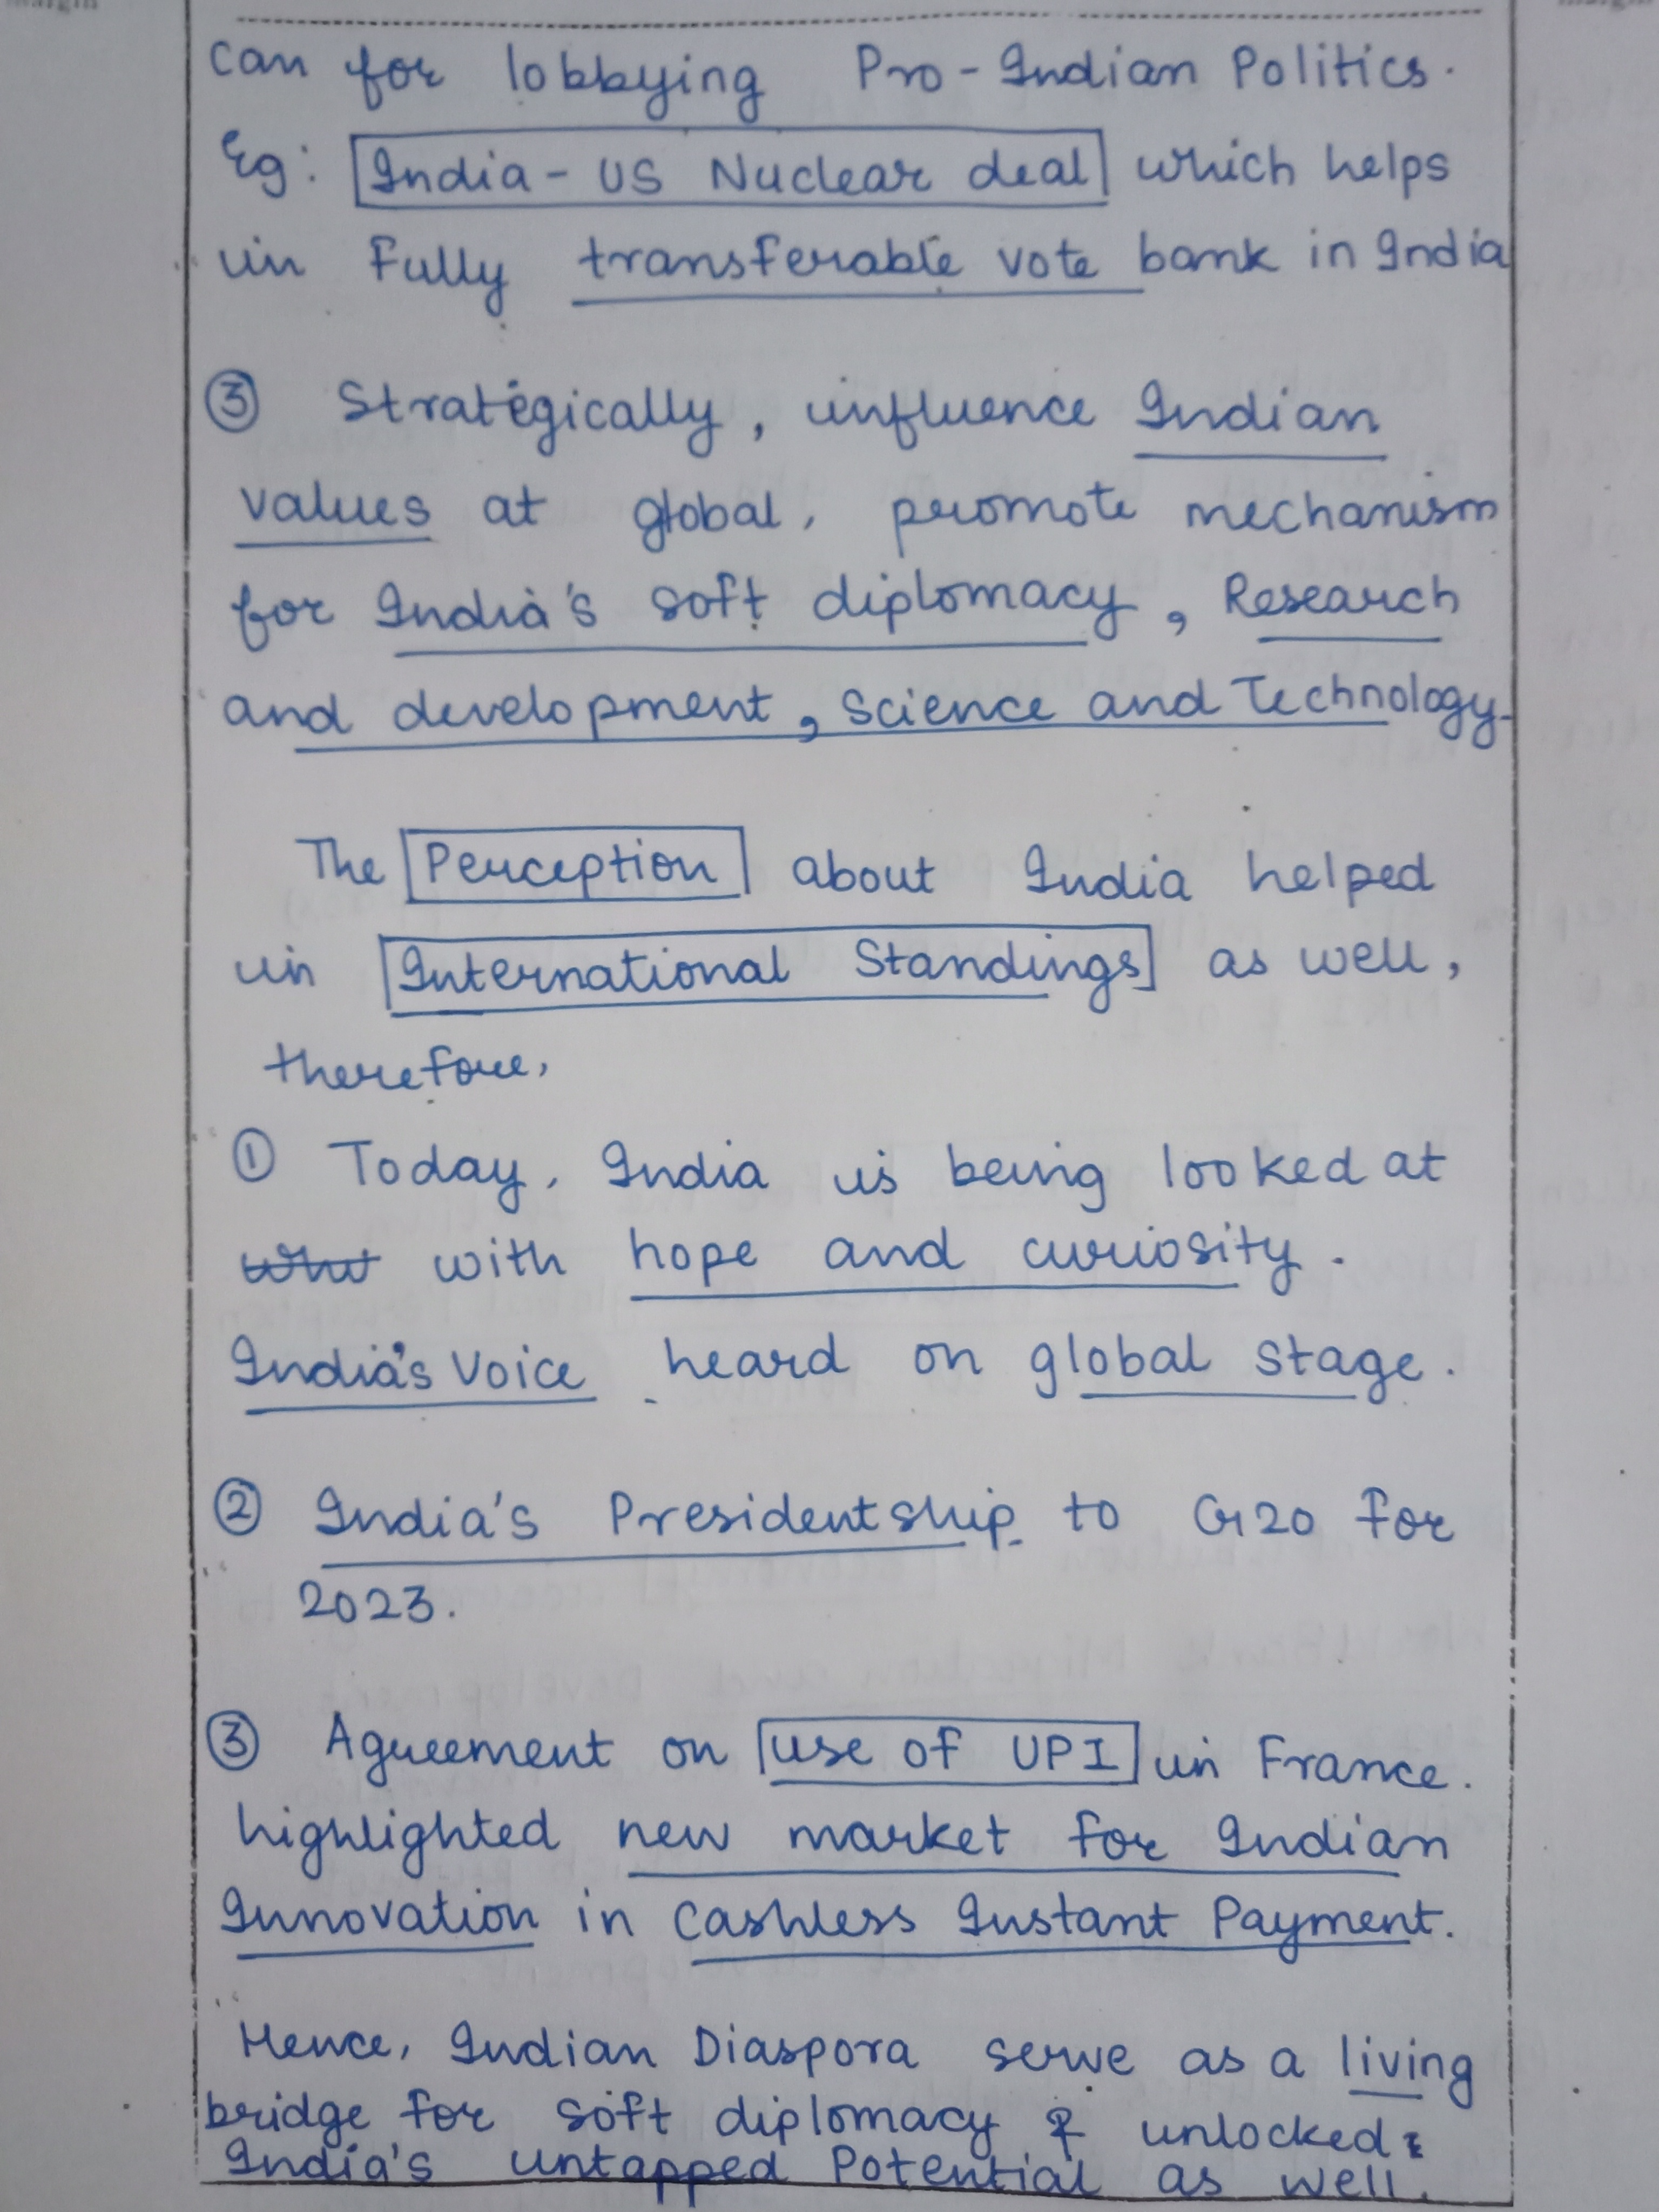 can for lobbying Pro-Indian Politics.
Eg: India-US Nuclear deal which helps
in Fully transferable vote bank in India
③ Strategically, influence Indian
values at global, promote mechanism
for India's soft diplomacy, Research
and development, Science and Technology.
The Perception about India helped
in International Standings as well,
therefore,
① Today, India is being looked at
with hope and curiosity.
India's Voice heard on global stage.
② India's Presidentship to G20 for
2023.
③ Agreement on use of UPI in France.
highlighted new market for Indian
Innovation in Cashless Instant Payment.
Hence, Indian Diaspora serve as a living
bridge for soft diplomacy & unlocked
India's untapped Potential as well.